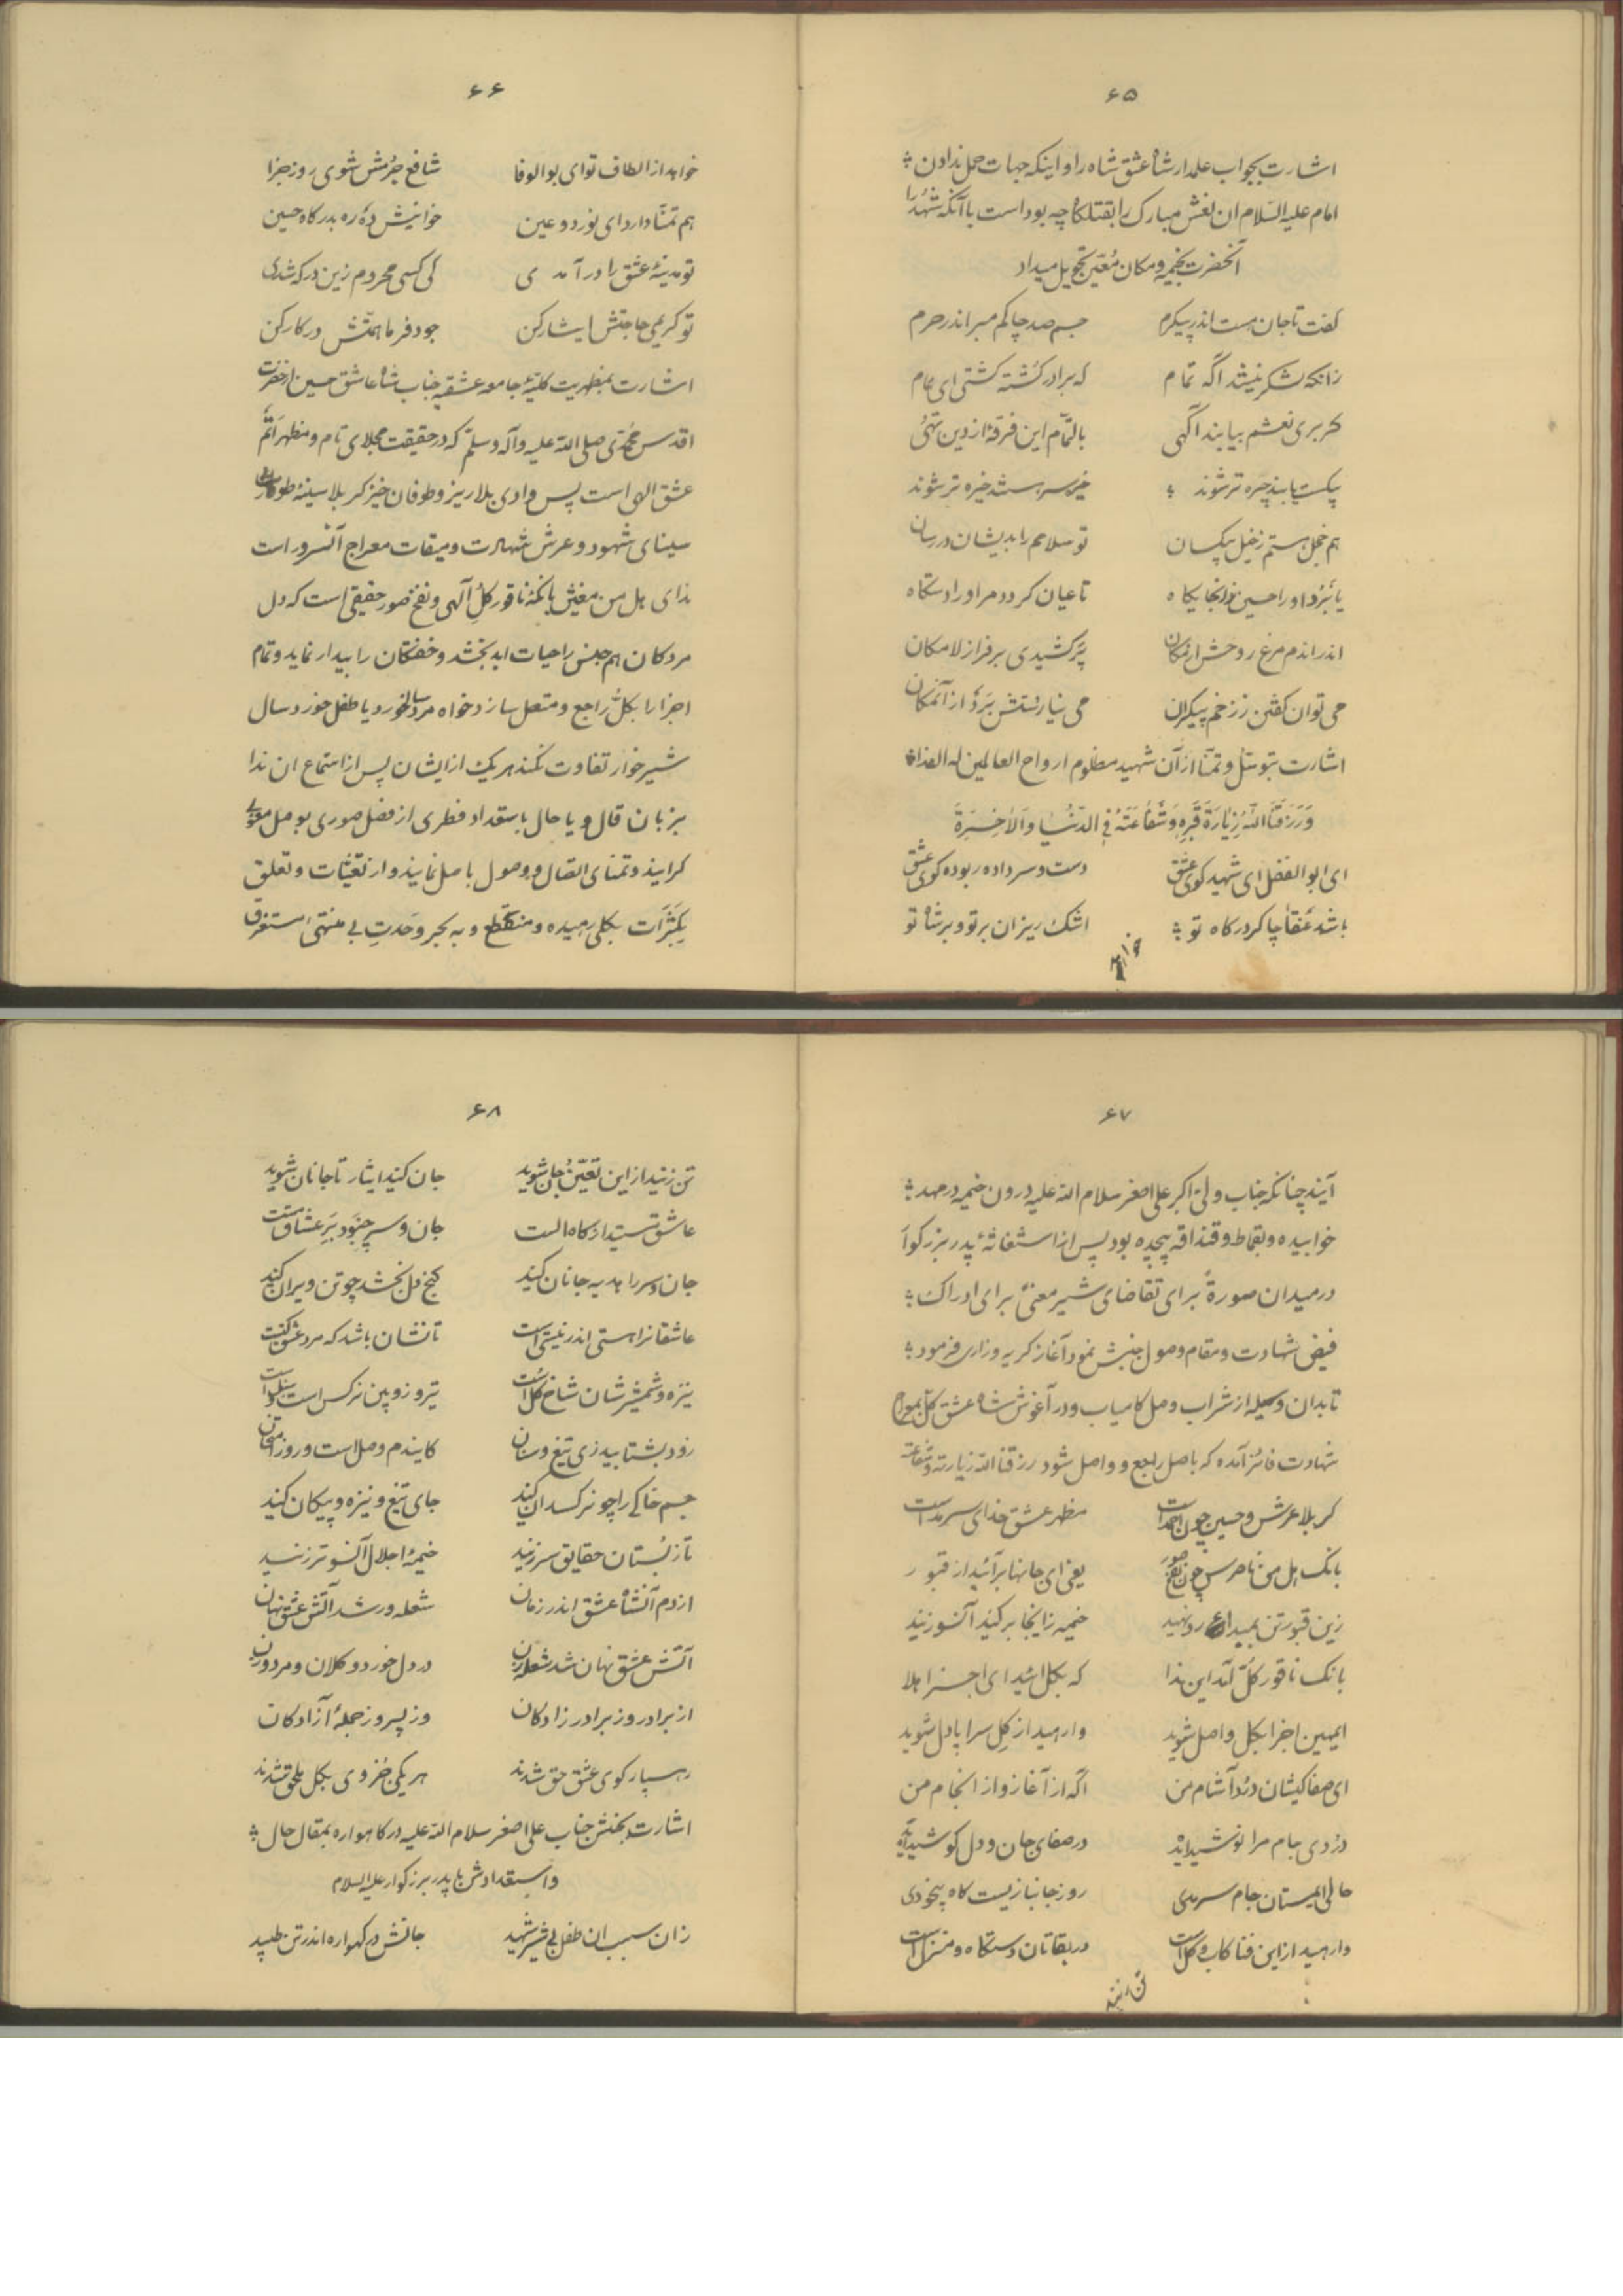 ۶۵
اشارت بجواب علمدار شاه عشق شاه را و اینکه جهات حمل ندادن
امام علیه السلام ان نعش مبارک را بقتلگاه چه بود است با آنکه شهدا را
آنحضرت بخیمه و مکان معین تحویل میداد
گفت تا جان هست اندر پیکرم جسم صد چاکم مبر اندر حرم
زانکه لشکر نیستند آگه تمام که برادر کشته گشتی ای همام
گر بری نعشم بیابند آگهی بالتمام این فرقهٔ از دین تهی
بیکست یابند چیره تر شوند خیره سر هستند خیره تر شوند
هم خجل هستم ز خیل بیکسان تو سلامم را بدیشان در رسان
یا نبرد او را حسین زانجایگاه تا عیان گردد مر او را دستگاه
اندر اندم مرغ روحش از مکان پر کشیدی بر فراز لامکان
می توان گفتن ز زخم بیکران می نیارستش برد از آنمکان
اشارت بتوسل و تمنا از آن شهید مظلوم ارواح العالمین له الفداه
وَرَزَقَنَا اللّهُ زِیٰارَةَ قَبرِهِ وَشَفٰاعَتَهُ فِی الدُّنْیٰا وَالاٰخِرَةِ
ای ابوالفضل ای شهید کوی عشق دست و سر داده ربوده گوی عشق
باشد عنقا چاکر درگاه تو اشک ریزان بر تو و بر شاه تو
خواهد
۶۶
خواهد از الطاف تو ای بوالوفا شافع جرمش شوی روز جزا
هم تمنا دارد ای نور دو عین خوانیش ده ره بدرگاه حسین
تو مدینهٔ عشق را در آمدی کی کسی محروم زین درگه شدی
تو کریمی حاجتش ایثار کن جود فرما همتش در کار کن
اشارت بمظهریت کلیهٔ جامعه عشقیه جناب شاه عاشق حسین از حضرت
اقدس محمدی صلی الله علیه وآله وسلم که در حقیقت مجلای تام و مظهر اتم
عشق الهی است پس وادی بلاریز و طوفان خیز کربلا سینهٔ
سینای شهود و عرش شهادت و میقات معراج آنسرور است
ندای هل من مغیث بانگ ناقور کل آلهی و نفخ صور حقیقی است که دل
مردگان هم جنس را حیات ابد بخشد و خفتگان را بیدار نماید و تمام
اجزا را بکل راجع و متصل سازد خواه مرد سالخورد یا طفل خورد سال
شیرخوار تفاوت نکند هر یک از ایشان پس از استماع ان ندا
بزبان قال و یا حال باستعداد فطری از فصل صوری بوصل معنوی
گرایند و تمنای اتصال و وصول باصل نمایند و از تعینات و تعلق
بکثرات بکلی رهیده و منقطع و به بحر وحدت بی منتهی مستغرق
۶۷
آیند چنانکه جناب ولی اکبر علی اصغر سلام الله علیه درون خیمه در مهد
خوابیده و بقماط و قنداقه پیچیده بود پس از استغاثهٔ پدر بزرگوار
در میدان صورةً برای تقاضای شیر معنیً برای ادراک
فیض شهادت و مقام وصول جنبش نمود آغاز گریه و زاری فرمود
تا بدان وسیله از شراب وصل کامیاب و در آغوش شاه عشق کل بمعراج
شهادت فائز آمده که باصل راجع و واصل شود رزقنا الله زیارته و شفاعته
کربلا عرش و حسین چون احمد است مظهر عشق خدای سرمد است
بانگ هل من ناصرش چون نفخ صور یعنی ای جانها برآئید از قبور
زین قبور تن بمیدان رو نهید خیمه زاینجا برکنید آنسو زنید
بانگ ناقور کل آمد این ندا که بکل ائید ای اجزا هلا
ایمهین اجزا بکل واصل شوید وارهید از گل سراپا دل شوید
ای صفا کیشان درد آشام من آگه از آغاز و از انجام من
دردی جام مرا نوشیده‌اید در صفای جان و دل کوشیده‌اید
حالی ایمستان جام سرمدی روز جانبازیست گاه بیخودی
وارهید از این فنا کاب و گل است در بقاتان دستگاه و منزل است
تن زنید
۶۸
تن زنید از این تعین جان شوید جان کنید ایثار تا جانان شوید
عاشق مستید از گاه الست جان و سر چبود بر عشاق مست
جان و سر را هدیه جانان کنید گنج دل بخشد چو تن ویران کنید
عاشقانرا هستی اندر نیستی است تا نشان باشد که مرد عشق کیست
نیزه و شمشیرشان شاخ گل است تیر و زوبین نرگس است و سنبل است
زود بشتابید زی تیغ و سنان کایندم وصل است و روز امتحان
جسم خاکی را چو نرگسدان کنید جای تیغ و نیزه و پیکان کنید
تا ز بستان حقایق سر زنید خیمهٔ اجلال آنسوتر زنید
از دم آنشاه عشق اندر زمان شعله ور شد آتش عشق نهان
آتش عشق نهان شد شعله زن در دل خورد و کلان و مرد و زن
از برادر وز برادر زادگان وز پسر وز جملهٔ آزادگان
رهسپار کوی عشق حق شدند هر یکی جزوی بکل ملحق شدند
اشارت بجنبش جناب علی اصغر سلام الله علیه در گاهواره بمقال حال
و استعدادش با پدر بزرگوار علیه السلام
زان سبب ان طفل بی شیر شهید جانش در گهواره اندر تن طپید